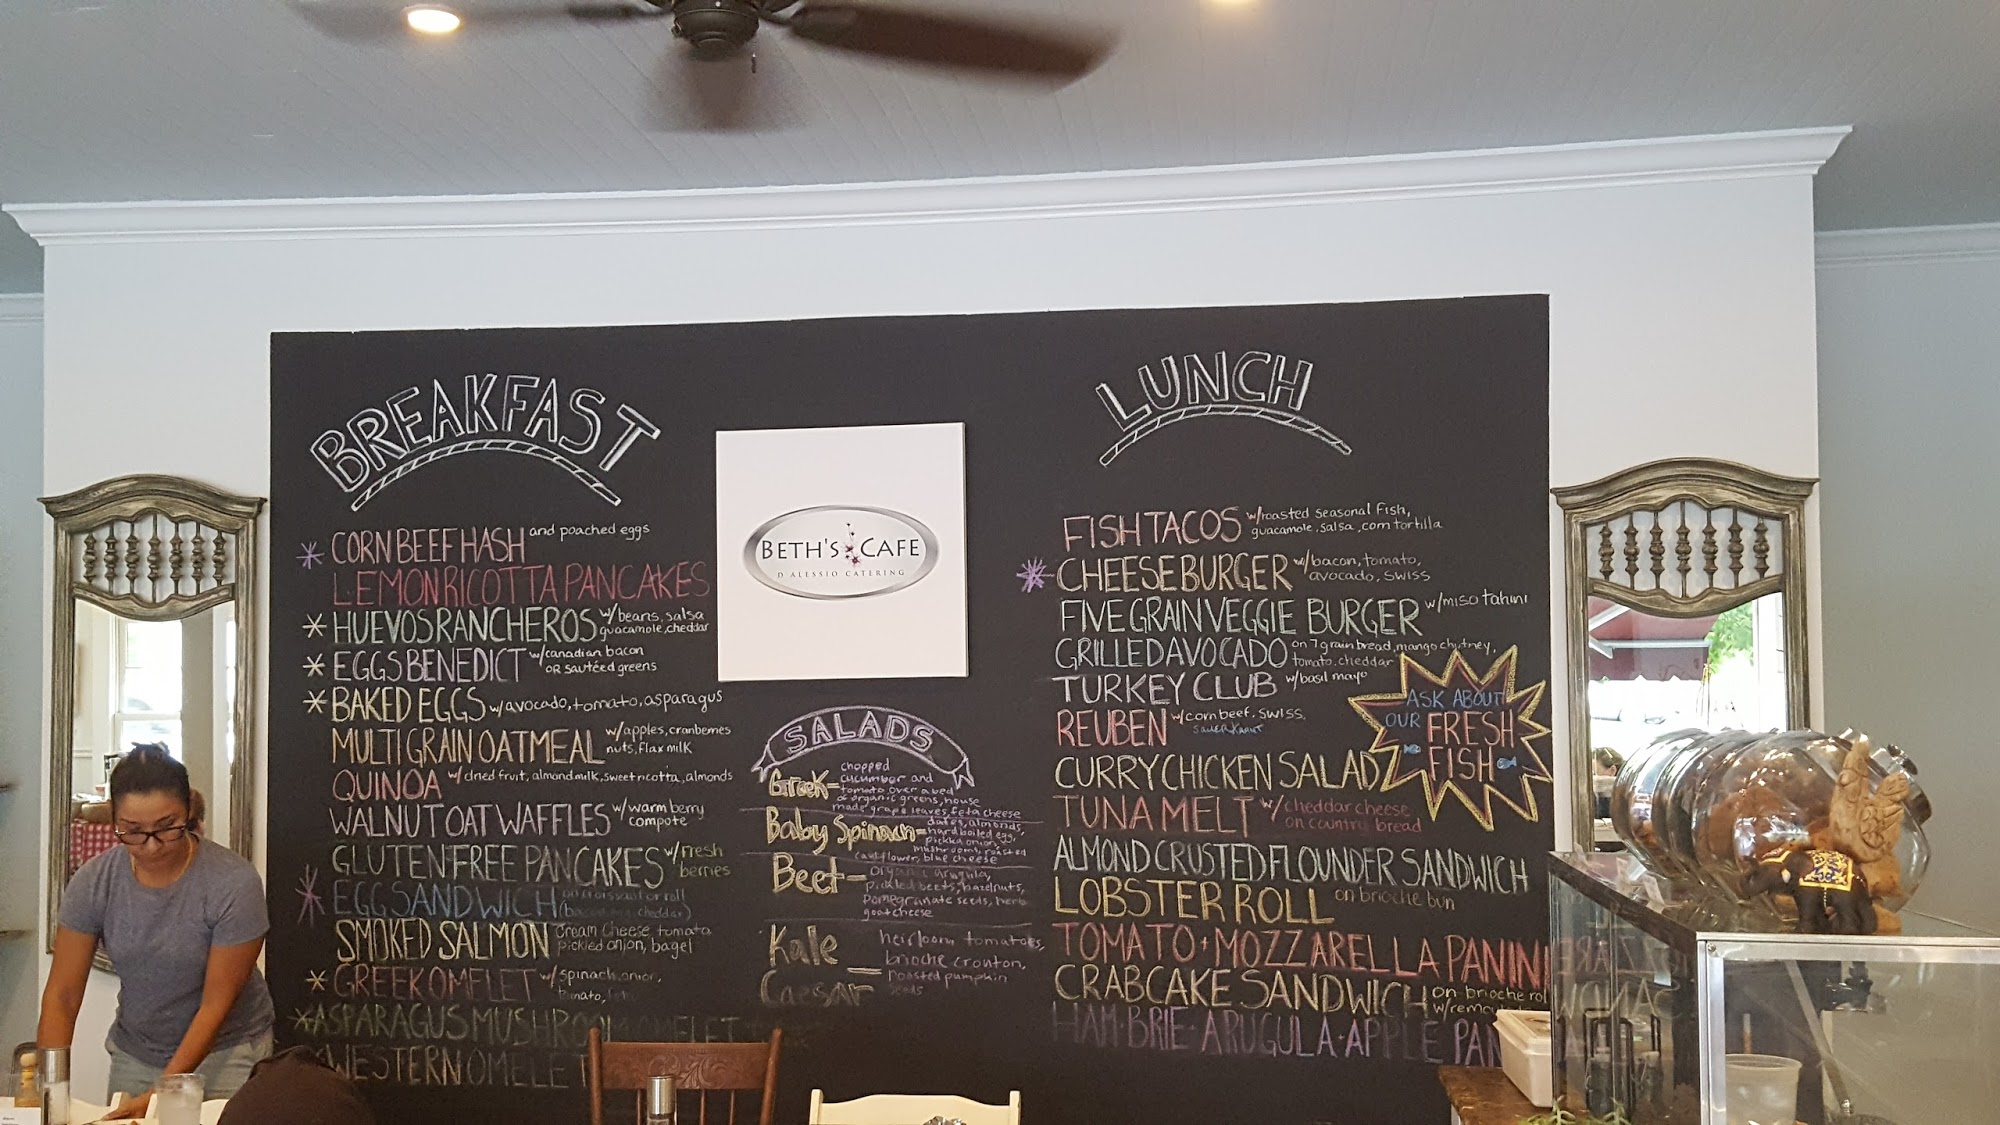 BREAKFAST
* CORN BEEF HASH and poached eggs
LEMON RICOTTA PANCAKES
* HUEVOS RANCHEROS w/beans, salsa
guacamole, cheddar
* EGGS BENEDICT w/canadian bacon
OR sautéed greens
* BAKED EGGS w/avocado, tomato, asparagus
MULTI GRAIN OATMEAL w/apples, cranberries
nuts, flax milk
QUINOA w/ dried fruit, almond milk, sweet ricotta, almonds
WALNUT OAT WAFFLES w/warm berry
compote
GLUTEN-FREE PANCAKES w/fresh
berries
* EGG SANDWICH on croissant or roll
(bacon, cheddar)
SMOKED SALMON cream cheese, tomato
pickled onion, bagel
* GREEK OMELET w/spinach, onion,
tomato,
* ASPARAGUS MUSHROOM OMELET
* WESTERN OMELET
BETH'S CAFE
D'ALESSIO CATERING
SALADS
Greek - chopped
cucumber and
tomato over a bed
of organic greens, house
made grape leaves, feta cheese
Baby Spinach - dates, almonds,
hard boiled egg,
pickled onion,
mushrooms, roasted
cauliflower, blue cheese
Beet - organic arugula,
pickled beets, hazelnuts,
pomegranate seeds, herb
goat cheese
Kale
Caesar - heirloom tomatoes,
brioche crouton,
roasted pumpkin
seeds
LUNCH
FISH TACOS w/roasted seasonal fish,
guacamole, salsa, corn tortilla
* CHEESEBURGER w/bacon, tomato,
avocado, swiss
FIVE GRAIN VEGGIE BURGER w/miso tahini
GRILLED AVOCADO on 7 grain bread, mango chutney,
tomato, cheddar
TURKEY CLUB w/basil mayo
REUBEN w/corn beef, swiss,
sauerkraut
CURRY CHICKEN SALAD
TUNA MELT w/cheddar cheese
on country bread
ALMOND CRUSTED FLOUNDER SANDWICH
LOBSTER ROLL on brioche bun
TOMATO + MOZZARELLA PANINI
CRABCAKE SANDWICH on brioche rol
HAM · BRIE · ARUGULA · APPLE PAN
ASK ABOUT
OUR FRESH
FISH